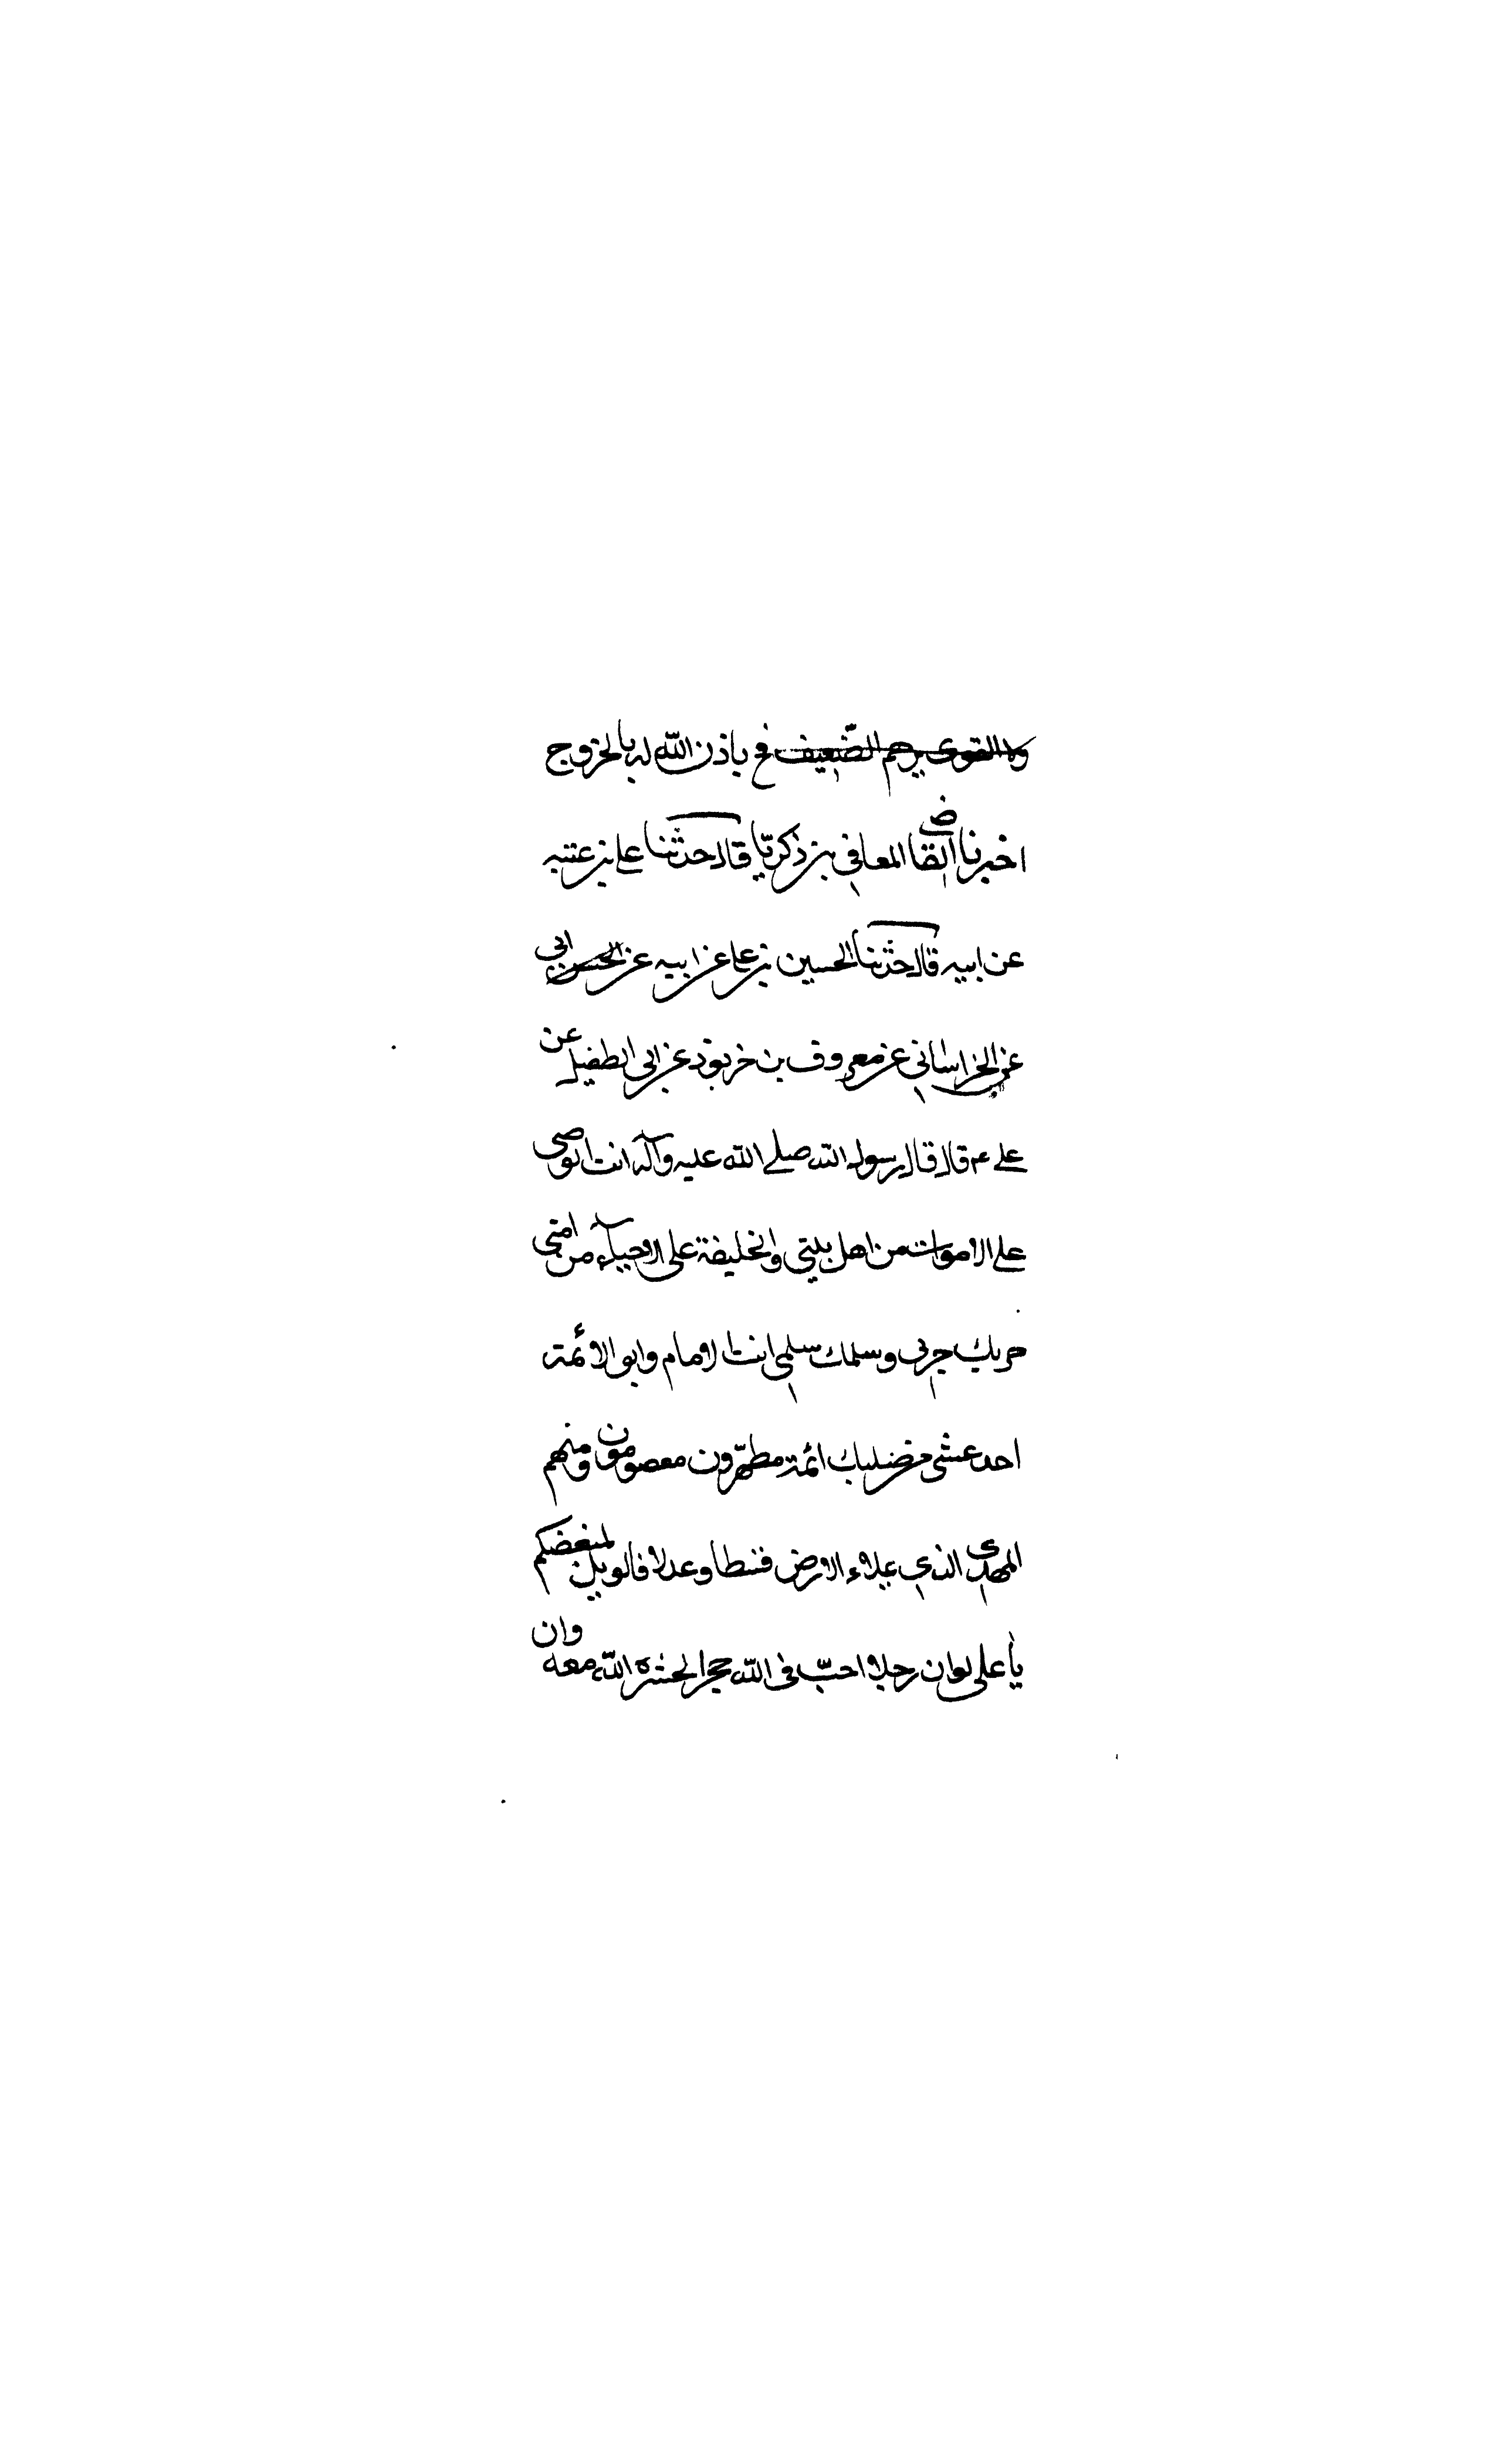 ولا القوى يرحم الضعيف فح ياذن الله له بالخروج
اخبرنا القاضى المعافى بن زكريّا قال حدثنا على بن عتبه
عن ابيه قال حدثنا الحسين بن على عن ابيه عن الحسن ابى
عن الخراسانى عن معروف بن خربوذ عن ابى الطفيل عن
على ع م قال قال رسول الله صلى الله عليه وآله انت الوصى
على الاموات من اهل بيتى والخليفة على الاحياء من امتى
حربك حربى وسلمك سلمى انت الامام وابو الائمة
احد عشر من صلبك ائمة مطهّرون معصومون ومنهم
المهدى الذى يملاء الارض قسطا وعدلا فالويل لمبغضكم
يا على لو ان رجلا احبّ فى الله حجرا لحشره الله معه وان